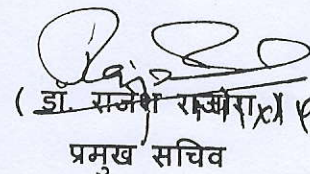 ( डॉ. राजेश राजौरा )
प्रमुख सचिव